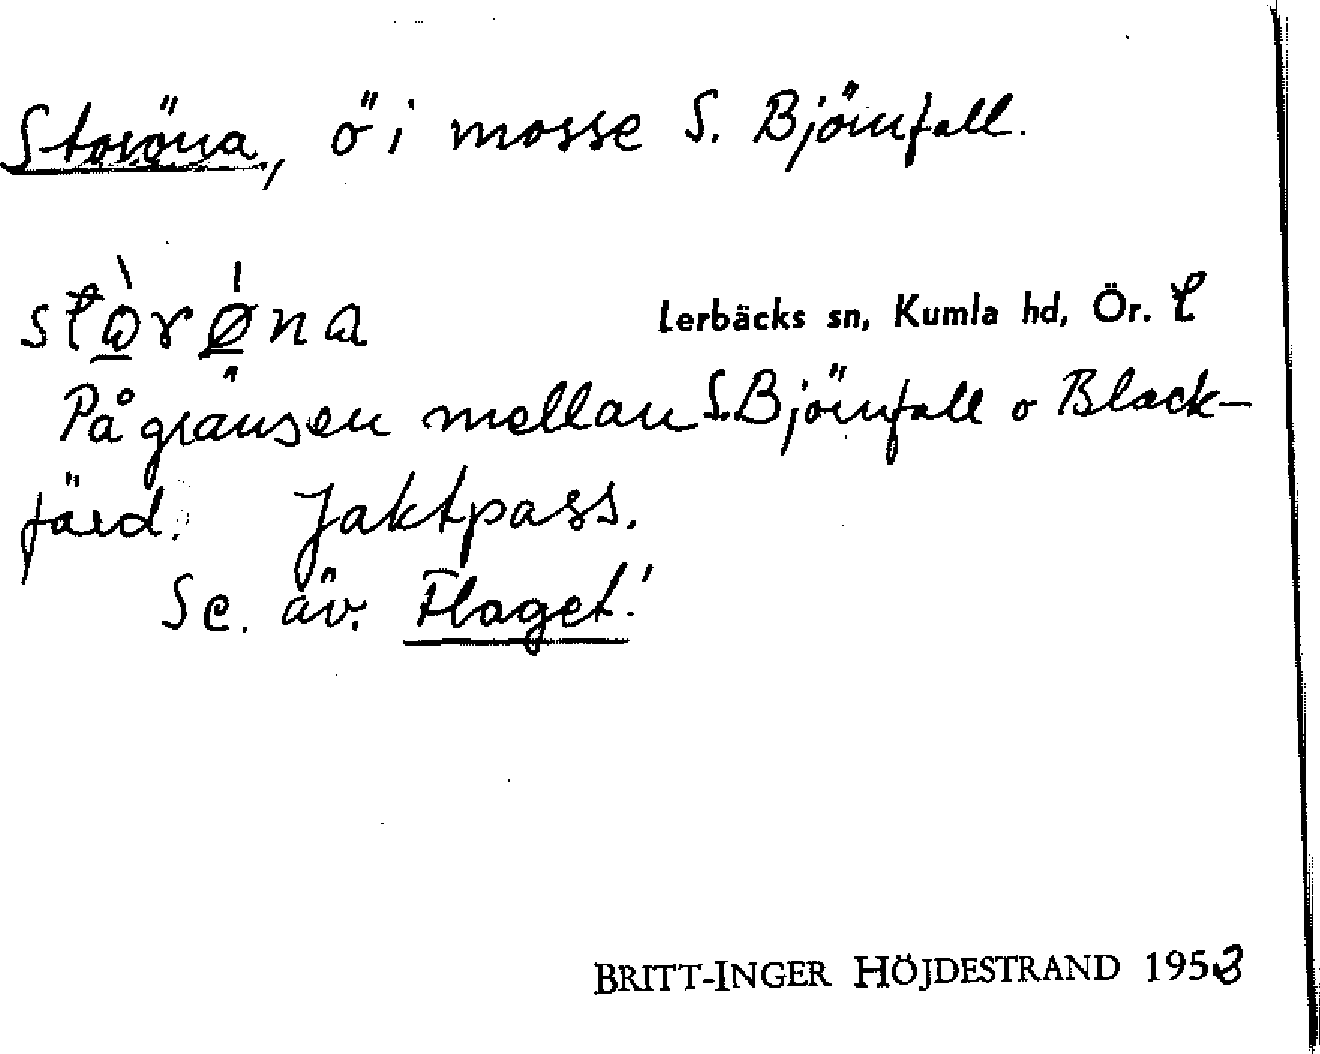 Storöna, ö i mosse S. Björnfall.
stò̱rǿ̱na
Lerbäcks sn, Kumla hd, Ör. l
På gränsen mellan S. Björnfall o Black-
färd. Jaktpass.
Se. äv. Flaget!
BRITT-INGER HÖJDESTRAND 1953